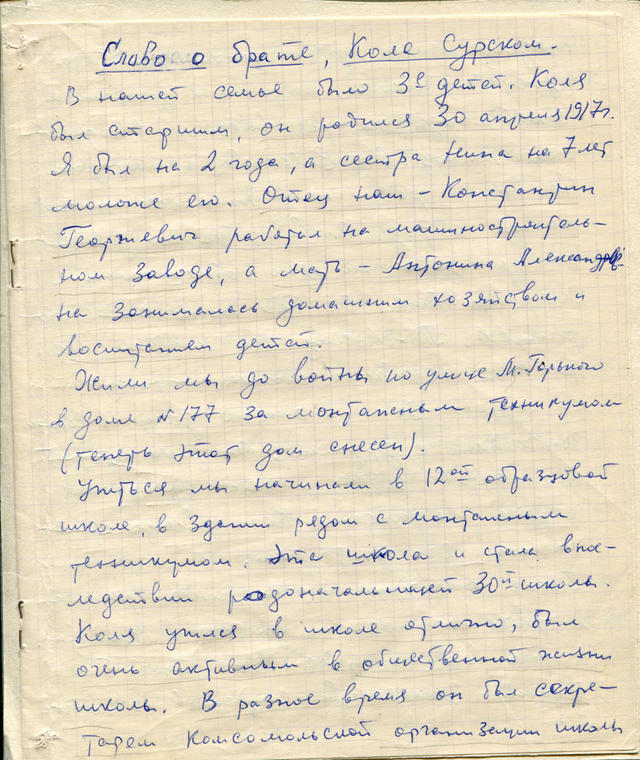 Слово о брате, Коле Сурском.
В нашей семье было 3е детей. Коля
был старшим, он родился 30 апреля 1917г.
Я был на 2 года, а сестра Нина на 7 лет
моложе его. Отец наш – Константин
Георгиевич работал на машиностроитель-
ном заводе, а мать – Антонина Александров-
на занималась домашним хозяйством и
воспитанием детей.
Жили мы до войны по улице М. Горького
в доме №177 за монтажным техникумом
(теперь этот дом снесен).
Учиться мы начинали в 12ой образцовой
школе, в здании рядом с монтажным
техникумом. Эта школа и стала впос-
ледствии родоначальницей 30й школы.
Коля учился в школе отлично, был
очень активным в общественной жизни
школы. В разное время он был секре-
тарем Комсомольской организации школы